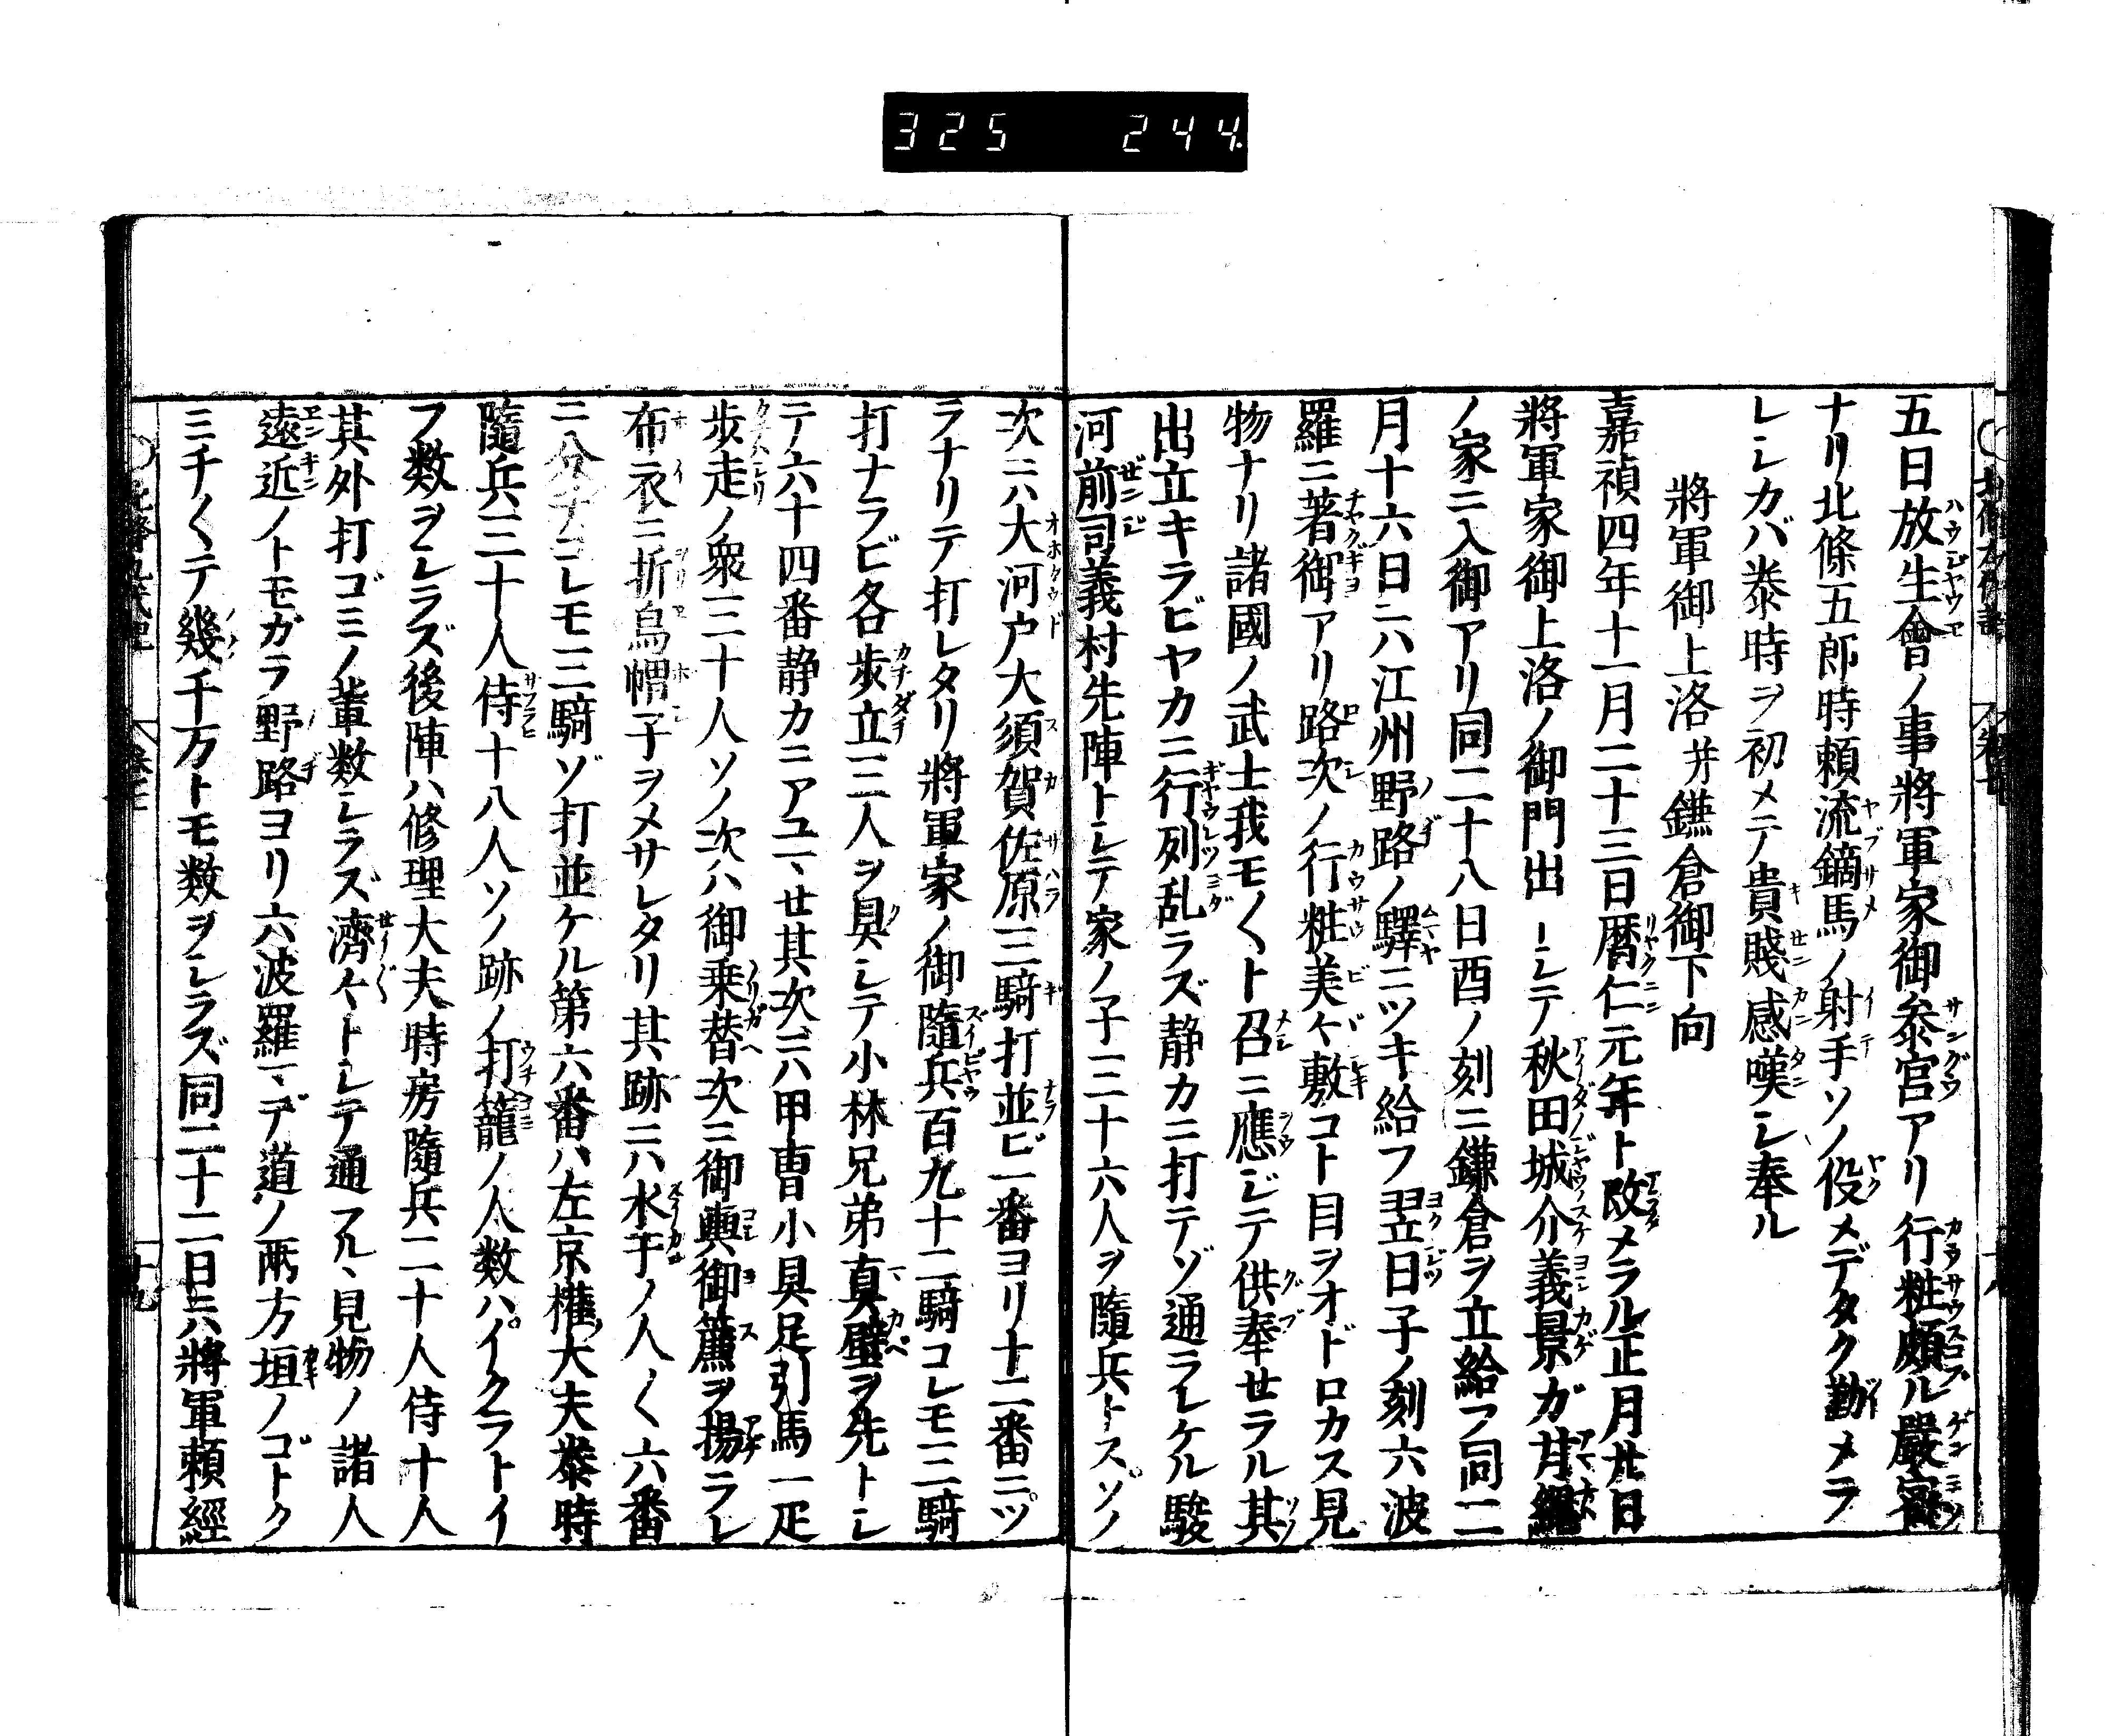 325 244.
五日放生會ノ事將軍家御參宮アリ行粧頗ル嚴密
ナリ北條五郎時賴流鏑馬ノ射手ソノ役メデタク勤メラ
レシカバ泰時ヲ初メテ貴賤感嘆シ奉ル
將軍御上洛并鎌倉御下向
嘉禎四年十一月二十三日暦仁元年ト改メラル正月廿日
將軍家御上洛ノ御門出トシテ秋田城介義景ガ甘繩
ノ家ニ入御アリ同二十八日酉ノ刻ニ鎌倉ヲ立給フ同二
月十六日ニハ江州野路ノ驛ニツキ給フ翌日子ノ刻六波
羅ニ著御アリ路次ノ行粧美々敷コト目ヲオドロカス見
物ナリ諸國ノ武士我モ〱ト召ニ應ジテ供奉セラル其
出立キラビヤカニ行列乱ラズ静カニ打テゾ通ラレケル駿
河前司義村先陣トシテ家ノ子三十六人ヲ隨兵トスソノ
次ニハ大河戸大須賀佐原三騎打並ビ一番ヨリ十二番ニツ
ラナリテ打レタリ將軍家ノ御隨兵百九十二騎コレモ三騎
打ナラビ各歩立三人ヲ具シテ小林兄弟真壁ヲ先トシ
テ六十四番静カニアユマセ其次ニハ甲曹小具足引馬一疋
歩走ノ衆三十人ソノ次ハ御乗替次ニ御輿御簾ヲ揚ラレ
布衣ニ折烏帽子ヲメサレタリ其跡ニハ水干ノ人〱六番
ニ分チコレモ三騎ゾ打並ケル第六番ハ左京權大夫泰時
隨兵三十人侍十八人ソノ跡ノ打籠ノ人数ハイクラトイ
フ数ヲシラズ後陣ハ修理大夫時房隨兵二十人侍十人
其外打ゴミノ輩数シラズ濟々トシテ通フル、見物ノ諸人
遠近ノトモガラ野路ヨリ六波羅マデ道ノ兩方垣ノゴトク
ミチ〱テ幾千万トモ数ヲシラズ同二十二日ニハ將軍賴經
十九